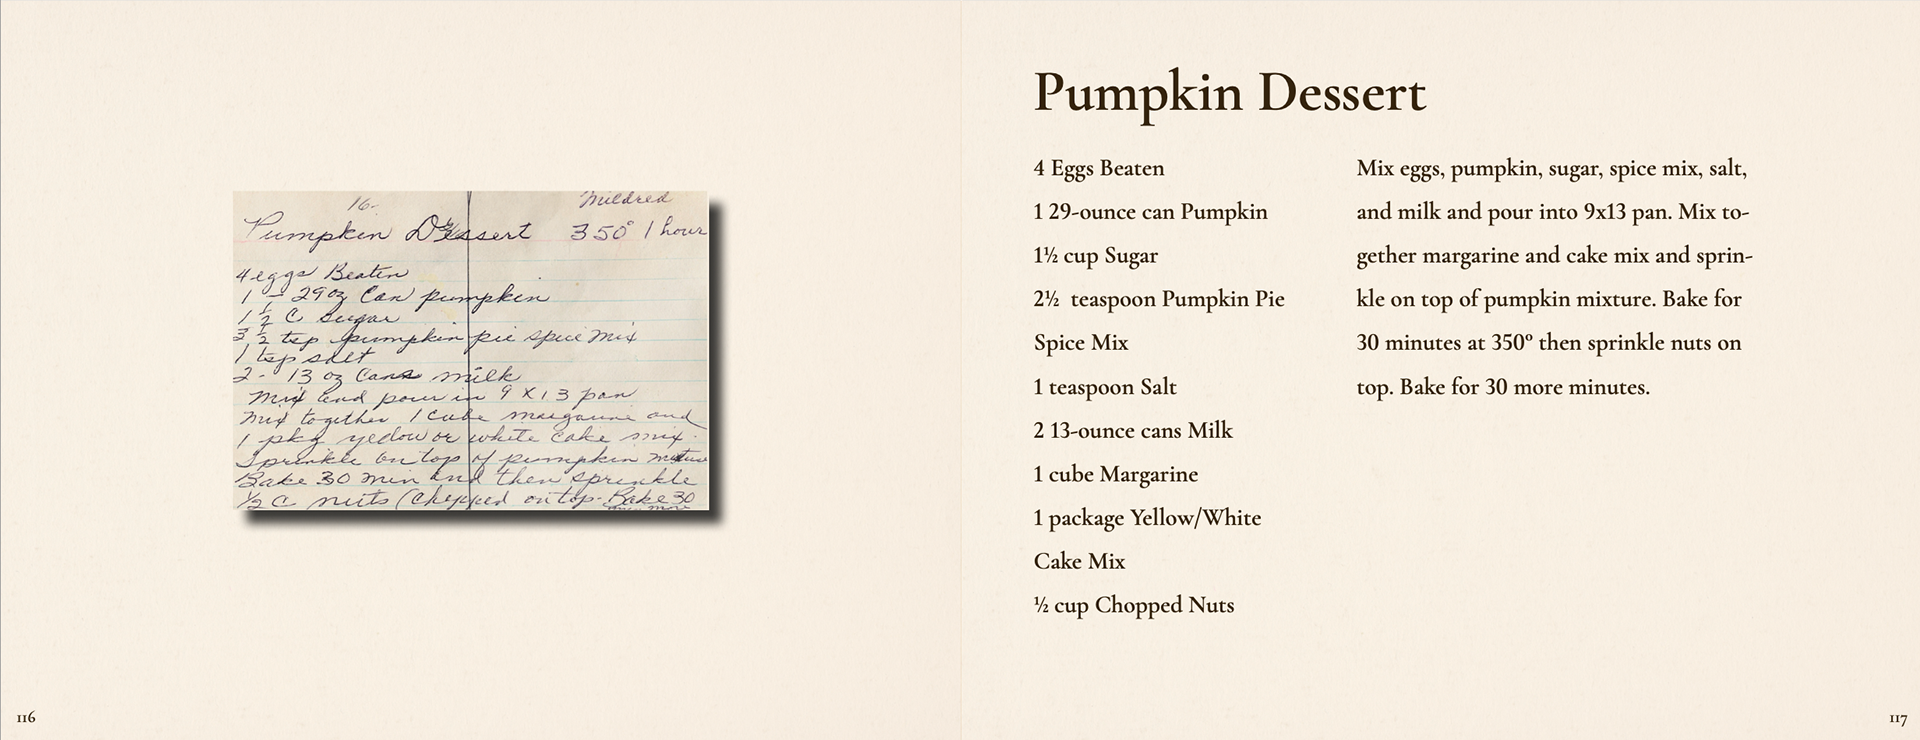 16-
Mildred
Pumpkin Dessert 350° 1 hour
4 eggs Beaten
1 - 29 oz Can pumpkin
1 1/2 C Sugar
3 1/2 tsp pumpkin pie spice mix
1 tsp salt
2 - 13 oz Cans milk
Mix and pour in 9 X 13 pan
Mix together 1 Cube margarine and
1 pkg yellow or white Cake mix.
Sprinkle on top of pumpkin mixture
Bake 30 min and then sprinkle
1/2 C nuts (Chopped on top - Bake 30
min more
116
Pumpkin Dessert
4 Eggs Beaten
1 29-ounce can Pumpkin
1½ cup Sugar
2½ teaspoon Pumpkin Pie
Spice Mix
1 teaspoon Salt
2 13-ounce cans Milk
1 cube Margarine
1 package Yellow/White
Cake Mix
½ cup Chopped Nuts
Mix eggs, pumpkin, sugar, spice mix, salt,
and milk and pour into 9x13 pan. Mix to-
gether margarine and cake mix and sprin-
kle on top of pumpkin mixture. Bake for
30 minutes at 350° then sprinkle nuts on
top. Bake for 30 more minutes.
117